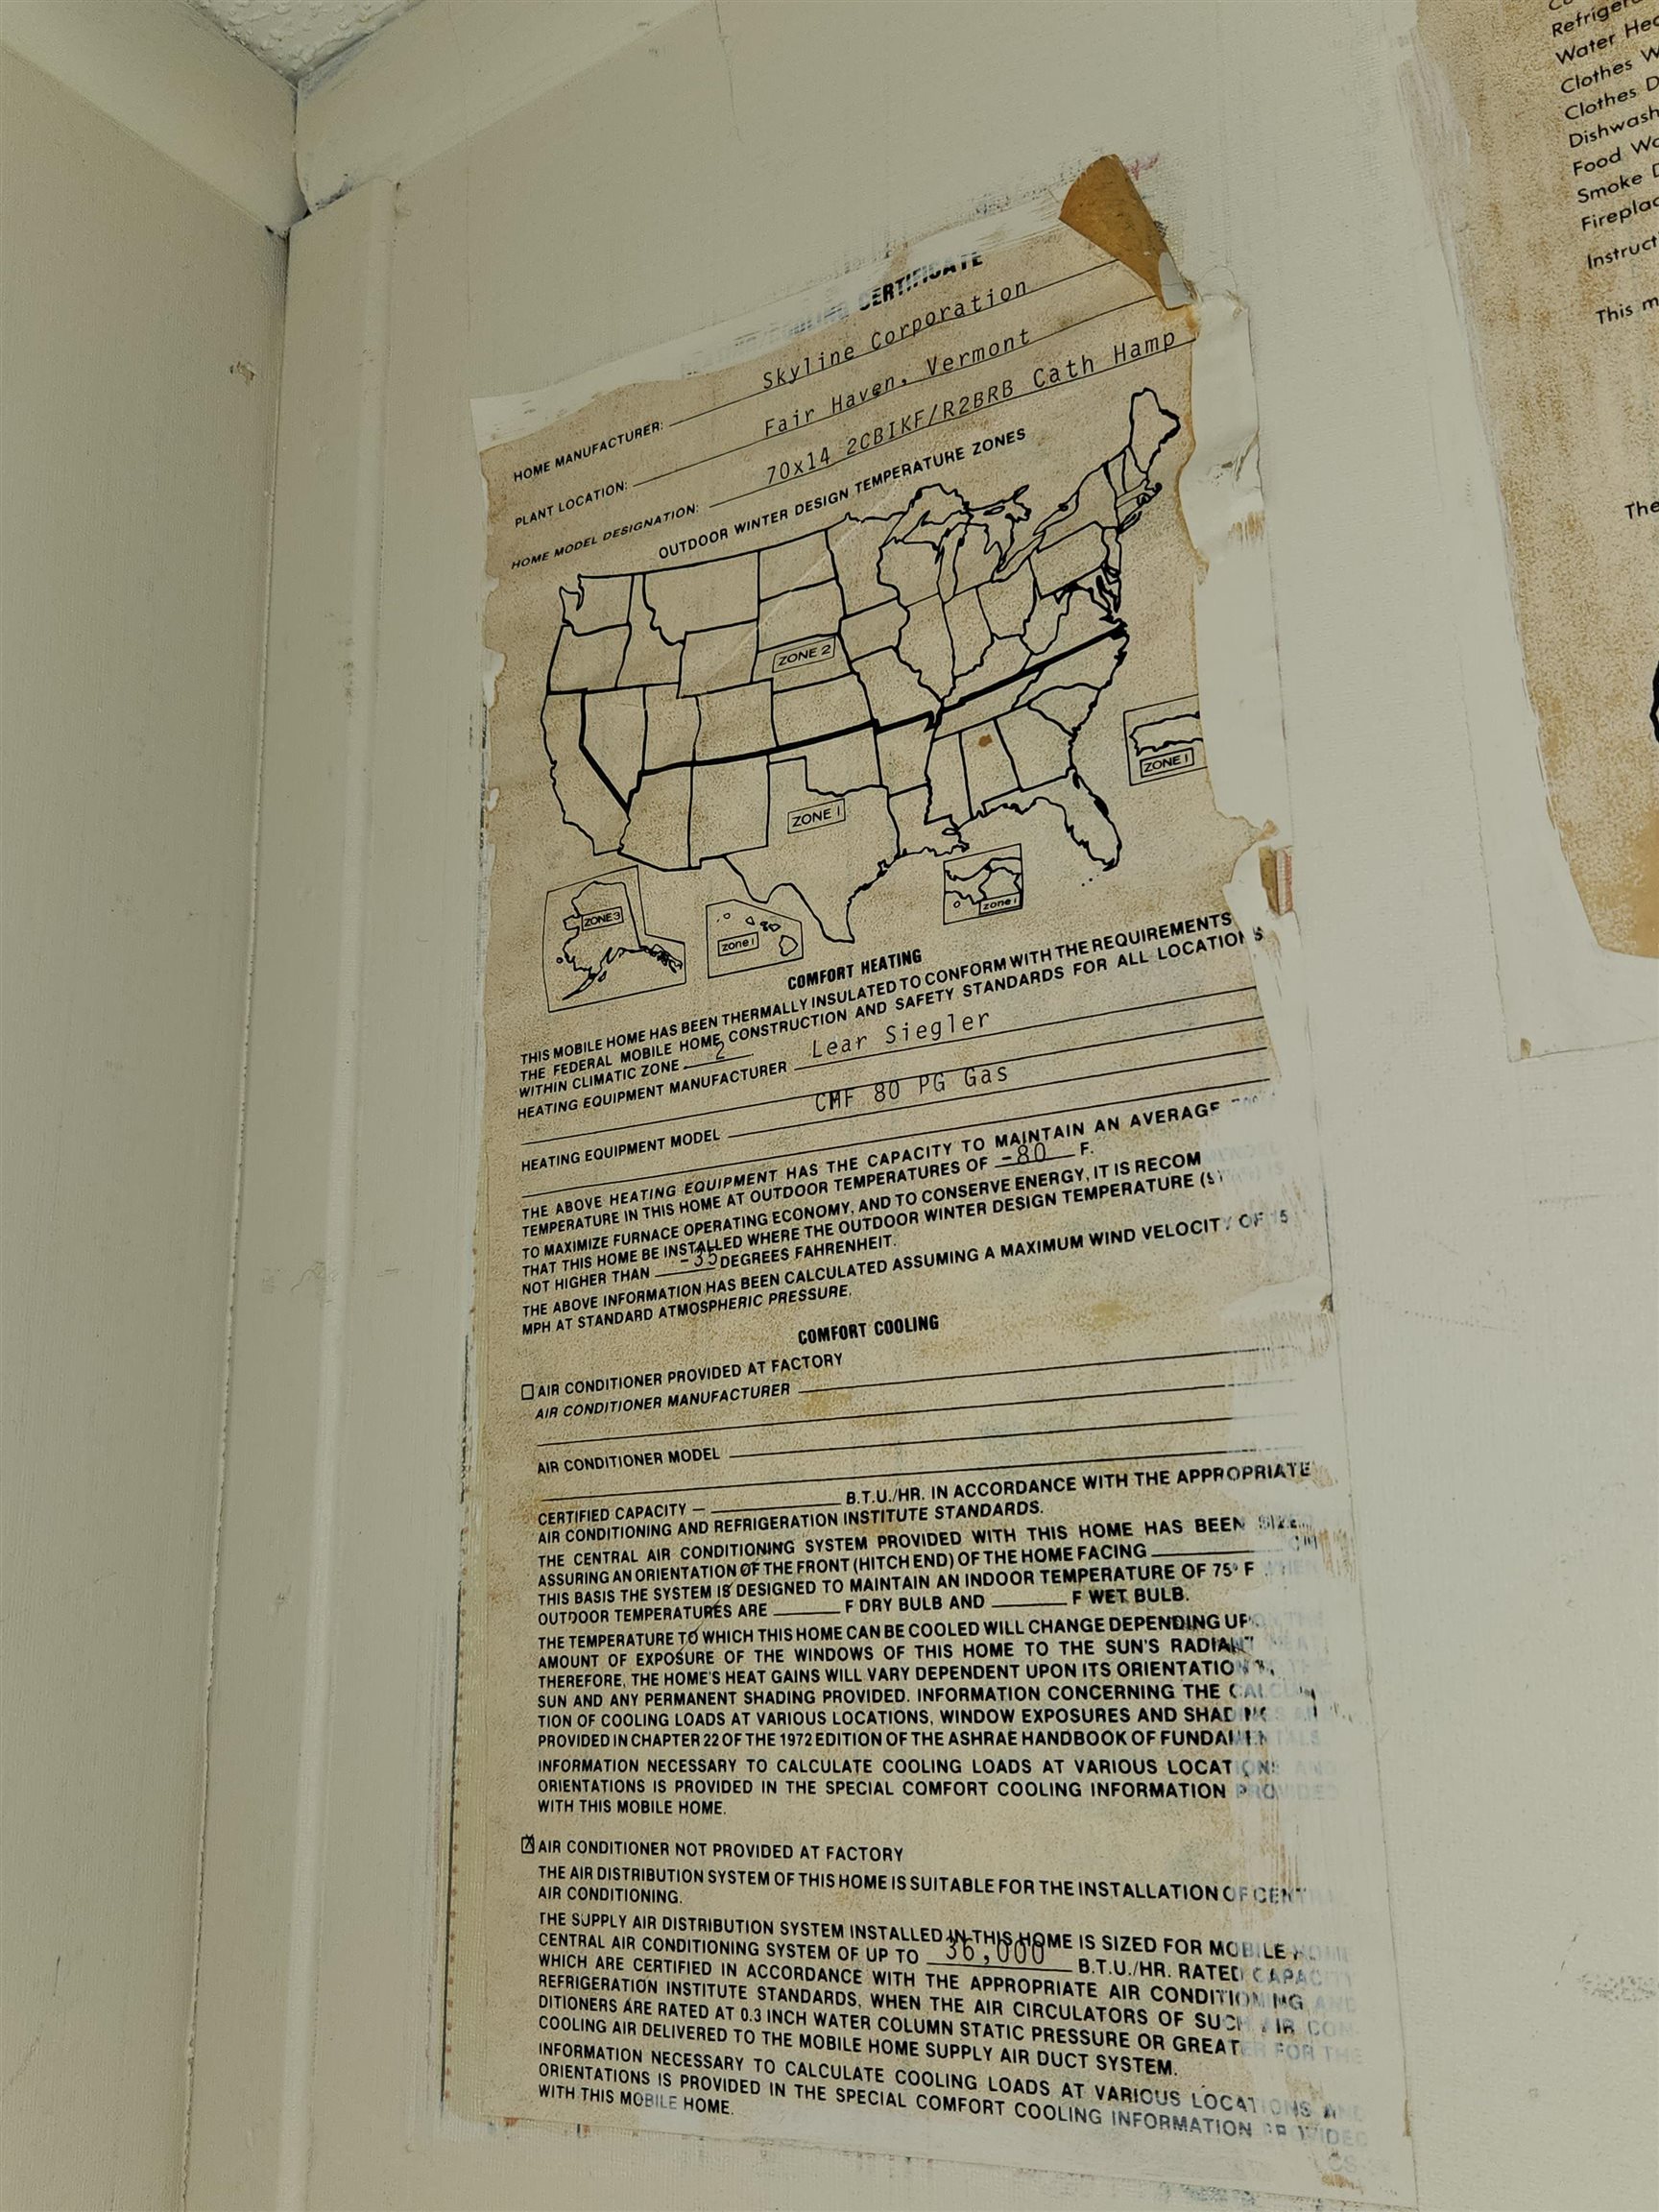 CERTIFICATE
HOME MANUFACTURER: Skyline Corporation
PLANT LOCATION: Fair Haven, Vermont
HOME MODEL DESIGNATION: 70x14 2CBIKF/R2BRB Cath Hamp
OUTDOOR WINTER DESIGN TEMPERATURE ZONES
ZONE 2
ZONE 1
ZONE 1
ZONE 3
zone 1
zone 1
COMFORT HEATING
THIS MOBILE HOME HAS BEEN THERMALLY INSULATED TO CONFORM WITH THE REQUIREMENTS
THE FEDERAL MOBILE HOME CONSTRUCTION AND SAFETY STANDARDS FOR ALL LOCATIONS
WITHIN CLIMATIC ZONE 2
HEATING EQUIPMENT MANUFACTURER Lear Siegler
HEATING EQUIPMENT MODEL CMF 80 PG Gas
THE ABOVE HEATING EQUIPMENT HAS THE CAPACITY TO MAINTAIN AN AVERAGE
TEMPERATURE IN THIS HOME AT OUTDOOR TEMPERATURES OF -80 F.
TO MAXIMIZE FURNACE OPERATING ECONOMY, AND TO CONSERVE ENERGY, IT IS RECOM
THAT THIS HOME BE INSTALLED WHERE THE OUTDOOR WINTER DESIGN TEMPERATURE
NOT HIGHER THAN -35 DEGREES FAHRENHEIT.
THE ABOVE INFORMATION HAS BEEN CALCULATED ASSUMING A MAXIMUM WIND VELOCITY OF 15
MPH AT STANDARD ATMOSPHERIC PRESSURE.
COMFORT COOLING
☐ AIR CONDITIONER PROVIDED AT FACTORY
AIR CONDITIONER MANUFACTURER
AIR CONDITIONER MODEL
CERTIFIED CAPACITY — ______ B.T.U./HR. IN ACCORDANCE WITH THE APPROPRIATE
AIR CONDITIONING AND REFRIGERATION INSTITUTE STANDARDS.
THE CENTRAL AIR CONDITIONING SYSTEM PROVIDED WITH THIS HOME HAS BEEN
ASSURING AN ORIENTATION OF THE FRONT (HITCH END) OF THE HOME FACING ______
THIS BASIS THE SYSTEM IS DESIGNED TO MAINTAIN AN INDOOR TEMPERATURE OF 75° F
OUTDOOR TEMPERATURES ARE ______ F DRY BULB AND ______ F WET BULB.
THE TEMPERATURE TO WHICH THIS HOME CAN BE COOLED WILL CHANGE DEPENDING
AMOUNT OF EXPOSURE OF THE WINDOWS OF THIS HOME TO THE SUN'S RADIANT
THEREFORE, THE HOME'S HEAT GAINS WILL VARY DEPENDENT UPON ITS ORIENTATION
SUN AND ANY PERMANENT SHADING PROVIDED. INFORMATION CONCERNING THE
TION OF COOLING LOADS AT VARIOUS LOCATIONS, WINDOW EXPOSURES AND
PROVIDED IN CHAPTER 22 OF THE 1972 EDITION OF THE ASHRAE HANDBOOK OF
INFORMATION NECESSARY TO CALCULATE COOLING LOADS AT VARIOUS LOCATIONS AND
ORIENTATIONS IS PROVIDED IN THE SPECIAL COMFORT COOLING INFORMATION PROVIDED
WITH THIS MOBILE HOME.
☒ AIR CONDITIONER NOT PROVIDED AT FACTORY
THE AIR DISTRIBUTION SYSTEM OF THIS HOME IS SUITABLE FOR THE INSTALLATION OF
AIR CONDITIONING.
THE SUPPLY AIR DISTRIBUTION SYSTEM INSTALLED IN THIS HOME IS SIZED FOR MOBILE
CENTRAL AIR CONDITIONING SYSTEM OF UP TO 36,000 B.T.U./HR. RATED CAPACITY
WHICH ARE CERTIFIED IN ACCORDANCE WITH THE APPROPRIATE AIR CONDITIONING AND
REFRIGERATION INSTITUTE STANDARDS, WHEN THE AIR CIRCULATORS OF SUCH AIR CON-
DITIONERS ARE RATED AT 0.3 INCH WATER COLUMN STATIC PRESSURE OR GREATER FOR THE
COOLING AIR DELIVERED TO THE MOBILE HOME SUPPLY AIR DUCT SYSTEM.
INFORMATION NECESSARY TO CALCULATE COOLING LOADS AT VARIOUS LOCATIONS AND
ORIENTATIONS IS PROVIDED IN THE SPECIAL COMFORT COOLING INFORMATION PROVIDED
WITH THIS MOBILE HOME.
Water
Clothes
Clothes
Food
Smoke
This
The